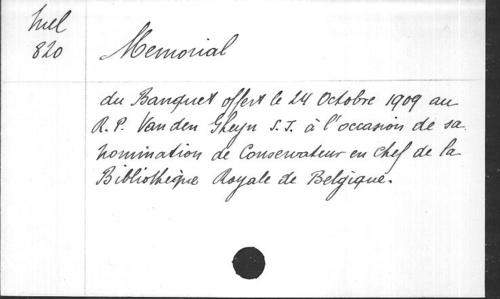 Mel
820
Memorial
du Banquet offert le 24 Octobre 1909 au
R. P. Van den Gheyn S. J. à l'occasion de sa
nomination de Conservateur en chef de la
Bibliothèque Royale de Belgique.